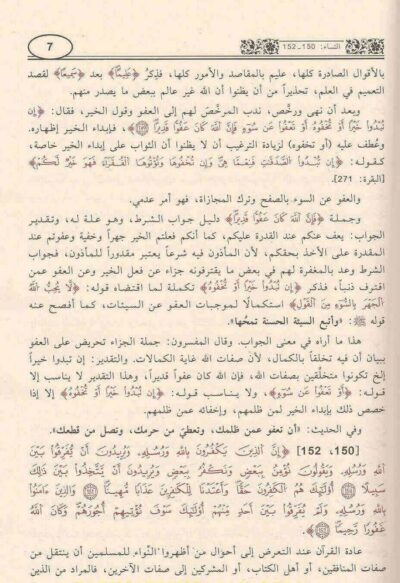 7
النساء: 150 ـ 152
بالأقوال الصادرة كلها، عليم بالمقاصد والأمور كلها، فذِكرُ ﴿عَلِيمًا﴾ بعد ﴿سَمِيعًا﴾ لقصد
التعميم في العلم، تحذيراً من أن يظنوا أن الله غير عالم ببعض ما يصدر منهم.
وبعد أن نهى ورخّص، ندب المرخَّصَ لهم إلى العفو وقول الخير، فقال: ﴿إِن
تُبْدُوا خَيْرًا أَوْ تُخْفُوهُ أَوْ تَعْفُوا عَن سُوٓءٍ فَإِنَّ ٱللَّهَ كَانَ عَفُوًّا قَدِيرًا﴾، فإبداء الخير إظهاره.
وعُطف عليه (أو تخفوه) لزيادة الترغيب أن لا يظنوا أن الثواب على إبداء الخير خاصة،
كقوله: ﴿إِن تُبْدُوا ٱلصَّدَقَٰتِ فَنِعِمَّا هِىَ وَإِن تُخْفُوهَا وَتُؤْتُوهَا ٱلْفُقَرَآءَ فَهُوَ خَيْرٌ لَّكُمْ﴾
[البقرة: 271].
والعفو عن السوء بالصفح وترك المجازاة، فهو أمر عدمي.
وجملة ﴿فَإِنَّ ٱللَّهَ كَانَ عَفُوًّا قَدِيرًا﴾ دليل جواب الشرط، وهو علة له، وتقدير
الجواب: يعف عنكم عند القدرة عليكم، كما أنكم فعلتم الخير جهراً وخفية وعفوتم عند
المقدرة على الأخذ بحقكم، لأن المأذون فيه شرعاً يعتبر مقدوراً للمأذون، فجواب
الشرط وعد بالمغفرة لهم في بعض ما يقترفونه جزاء عن فعل الخير وعن العفو عمن
اقترف ذنباً، فذكر ﴿إِن تُبْدُوا خَيْرًا أَوْ تُخْفُوهُ﴾ تكملة لما اقتضاه قوله: ﴿لَّا يُحِبُّ ٱللَّهُ
ٱلْجَهْرَ بِٱلسُّوٓءِ مِنَ ٱلْقَوْلِ﴾ استكمالاً لموجبات العفو عن السيئات، كما أفصح عنه
قوله ﷺ: «وأتبع السيئة الحسنة تمحُها».
هذا ما أراه في معنى الجواب. وقال المفسرون: جملة الجزاء تحريض على العفو
ببيان أن فيه تخلقاً بالكمال، لأن صفات الله غاية الكمالات. والتقدير: إن تبدوا خيراً
إلخ تكونوا متخلّقين بصفات الله، فإن الله كان عفواً قديراً، وهذا التقدير لا يناسب إلا
قوله: ﴿أَوْ تَعْفُوا عَن سُوٓءٍ﴾، ولا يناسب قوله: ﴿إِن تُبْدُوا خَيْرًا أَوْ تُخْفُوهُ﴾ إلا إذا
خصص ذلك بإبداء الخير لمن ظلمهم، وإخفائه عمن ظلمهم.
وفي الحديث: «أن تعفو عمن ظلمك، وتعطيَ من حرمك، وتصل من قطعك».
[150، 152] ﴿إِنَّ ٱلَّذِينَ يَكْفُرُونَ بِٱللَّهِ وَرُسُلِهِۦ وَيُرِيدُونَ أَن يُفَرِّقُوا بَيْنَ
ٱللَّهِ وَرُسُلِهِۦ وَيَقُولُونَ نُؤْمِنُ بِبَعْضٍ وَنَكْفُرُ بِبَعْضٍ وَيُرِيدُونَ أَن يَتَّخِذُوا بَيْنَ ذَٰلِكَ
سَبِيلًا أُو۟لَٰٓئِكَ هُمُ ٱلْكَٰفِرُونَ حَقًّا وَأَعْتَدْنَا لِلْكَٰفِرِينَ عَذَابًا مُّهِينًا وَٱلَّذِينَ ءَامَنُوا
بِٱللَّهِ وَرُسُلِهِۦ وَلَمْ يُفَرِّقُوا بَيْنَ أَحَدٍ مِّنْهُمْ أُو۟لَٰٓئِكَ سَوْفَ يُؤْتِيهِمْ أُجُورَهُمْ وَكَانَ ٱللَّهُ
غَفُورًا رَّحِيمًا﴾.
عادة القرآن عند التعرض إلى أحوال من أظهروا النِّواء للمسلمين أن ينتقل من
صفات المنافقين، أو أهل الكتاب، أو المشركين إلى صفات الآخرين، فالمراد من الذين